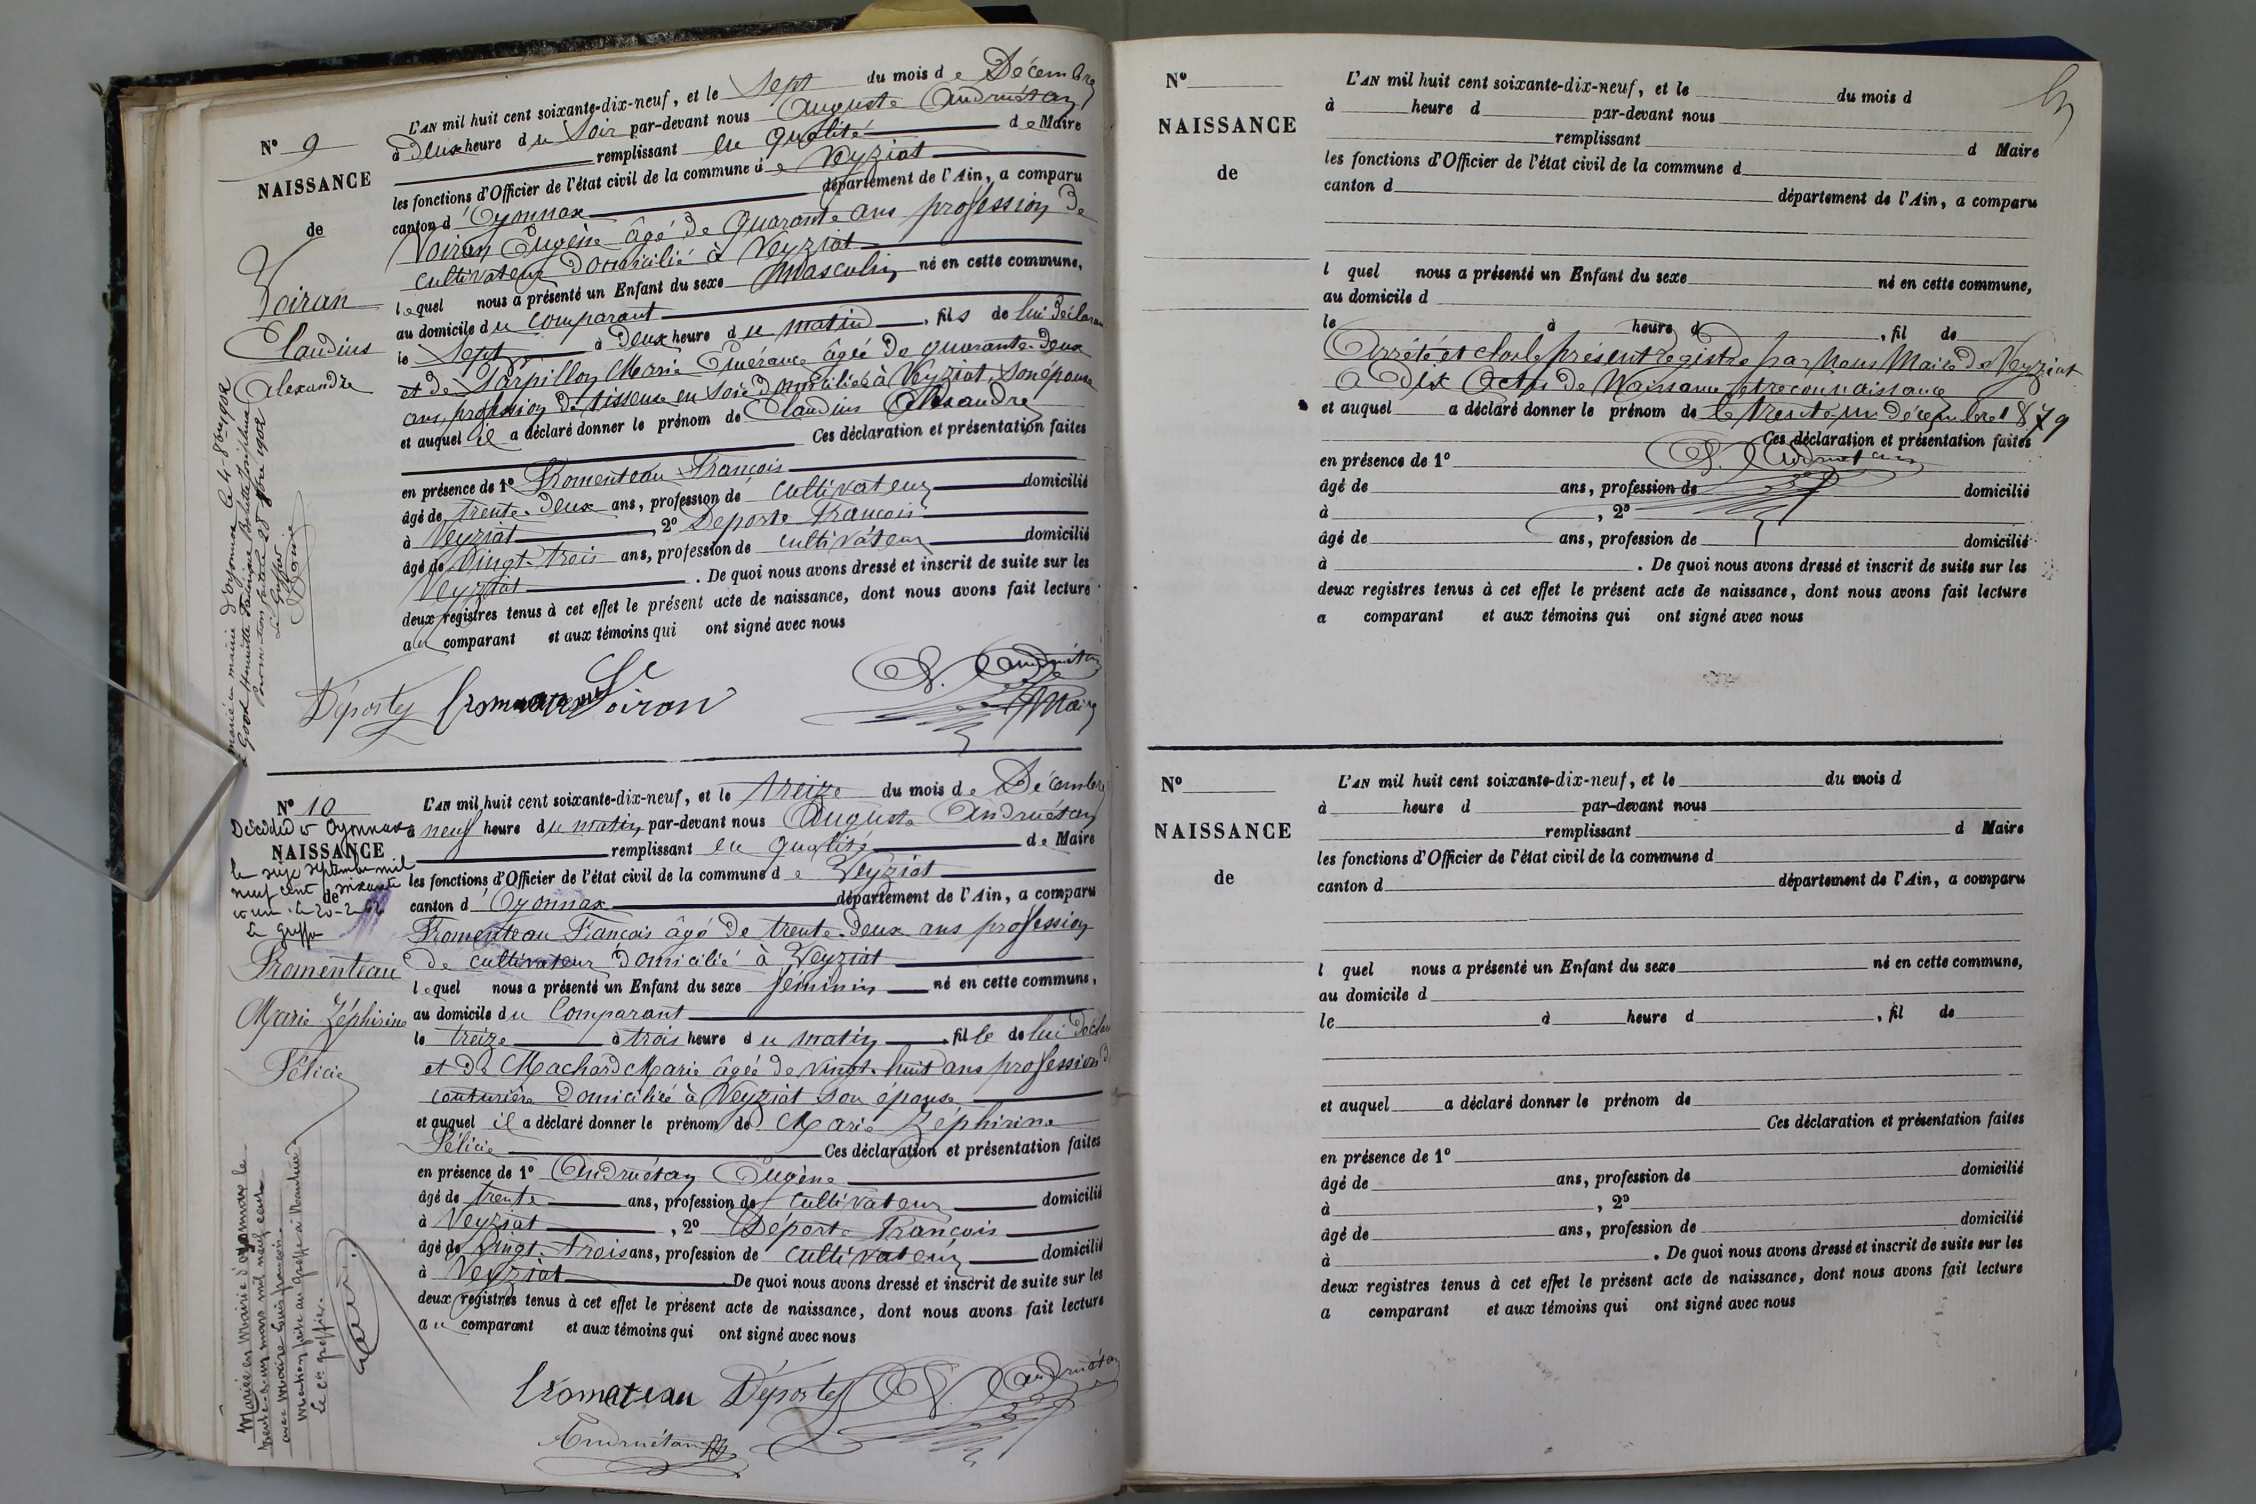 N° 9
NAISSANCE
de
Voiran
Claudius
Alexandre
L'AN mil huit cent soixante-dix-neuf, et le sept du mois de Décembre
à deux heure du soir par-devant nous Auguste Andruétan
remplissant en qualité de Maire
les fonctions d'Officier de l'état civil de la commune de Veyziat
canton d'Oyonnax département de l'Ain, a comparu
Voiran Eugène âgé de quarante ans profession de
cultivateur domicilié à Veyziat
lequel nous a présenté un Enfant du sexe masculin né en cette commune,
au domicile du comparant
le sept à deux heure du matin, fils de lui déclarant
et de Marie âgée de quarante-deux
ans, profession de tisseuse en soie domiciliée à Veyziat, son épouse
et auquel il a déclaré donner le prénom de Claudius Alexandre
Ces déclaration et présentation faites
en présence de 1° Fromenteau François
âgé de trente-deux ans, profession de cultivateur domicilié
à Veyziat, 2° Déporte François
âgé de vingt-trois ans, profession de cultivateur domicilié
Veyziat. De quoi nous avons dressé et inscrit de suite sur les
deux registres tenus à cet effet le présent acte de naissance, dont nous avons fait lecture
au comparant et aux témoins qui ont signé avec nous
Voiron
Maire
N° 10
Décédée à Oyonnax
NAISSANCE
le six septembre mil
neuf cent soixante
de
Fromenteau
Marie Zéphirine
Félicie
L'AN mil huit cent soixante-dix-neuf, et le treize du mois de Décembre
à neuf heure du matin par-devant nous Auguste Andruétan
remplissant en qualité de Maire
les fonctions d'Officier de l'état civil de la commune de Veyziat
canton d'Oyonnax département de l'Ain, a comparu
Fromenteau François âgé de trente-deux ans profession
de cultivateur domicilié à Veyziat
lequel nous a présenté un Enfant du sexe féminin né en cette commune,
au domicile du Comparant
le treize à trois heure du matin, fille de lui déclarant
et de Machard Marie âgée de vingt-huit ans profession de
couturière domiciliée à Veyziat son épouse
et auquel il a déclaré donner le prénom de Marie Zéphirine
Félicie Ces déclaration et présentation faites
en présence de 1° Andruétan Eugène
âgé de trente ans, profession de cultivateur domicilié
à Veyziat, 2° Déporte François
âgé de vingt-trois ans, profession de cultivateur domicilié
à Veyziat De quoi nous avons dressé et inscrit de suite sur les
deux registres tenus à cet effet le présent acte de naissance, dont nous avons fait lecture
au comparant et aux témoins qui ont signé avec nous
N°
NAISSANCE
de
L'AN mil huit cent soixante-dix-neuf, et le du mois d
à heure d par-devant nous
remplissant d Maire
les fonctions d'Officier de l'état civil de la commune d
canton d département de l'Ain, a comparu
l quel nous a présenté un Enfant du sexe né en cette commune,
au domicile d
le à heure d, fil de
Arrêté et clos le présent registre par Nous Maire de Veyziat
à Dix Actes de Naissance et reconnaissance
et auquel a déclaré donner le prénom de le trente-un décembre 1879
Ces déclaration et présentation faites
en présence de 1°
âgé de ans, profession de domicilié
à, 2°
âgé de ans, profession de domicilié
à. De quoi nous avons dressé et inscrit de suite sur les
deux registres tenus à cet effet le présent acte de naissance, dont nous avons fait lecture
a comparant et aux témoins qui ont signé avec nous
N°
NAISSANCE
de
L'AN mil huit cent soixante-dix-neuf, et le du mois d
à heure d par-devant nous
remplissant d Maire
les fonctions d'Officier de l'état civil de la commune d
canton d département de l'Ain, a comparu
l quel nous a présenté un Enfant du sexe né en cette commune,
au domicile d
le à heure d, fil de
et auquel a déclaré donner le prénom de
Ces déclaration et présentation faites
en présence de 1°
âgé de ans, profession de domicilié
à, 2°
âgé de ans, profession de domicilié
à. De quoi nous avons dressé et inscrit de suite sur les
deux registres tenus à cet effet le présent acte de naissance, dont nous avons fait lecture
a comparant et aux témoins qui ont signé avec nous